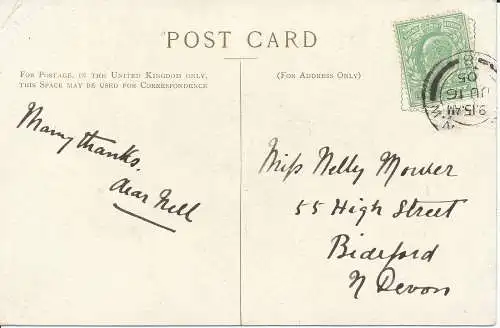 POST CARD
FOR POSTAGE, IN THE UNITED KINGDOM ONLY,
THIS SPACE MAY BE USED FOR CORRESPONDENCE
(FOR ADDRESS ONLY)
Many thanks,
dear Nell
Miss Nelly Mower
55 High Street
Bideford
N Devon
9.15 AM
JU 16
05